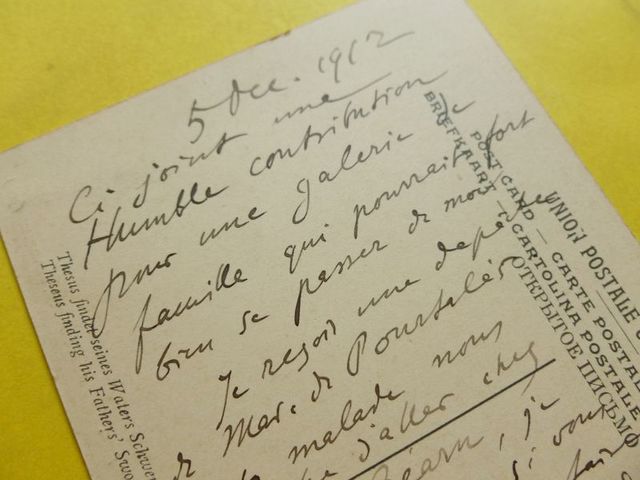 5 Dec. 1912
Ci joint une
Humble contribution
pour une galerie de
famille qui pourrait fort
bien se passer de moi
Je reçois une dépêche
de Marc. de Pourtalès
malade nous
d'aller chez
Béarn, je
si vous
Thesus findet seines Vaters Schwer
Theseus finding his Fathers' Swo
UNION POSTALE U
POST CARD — CARTE POSTAL
BRIEFKAART — CARTOLINA POSTALE
ОТКРЫТОЕ ПИСЬМО